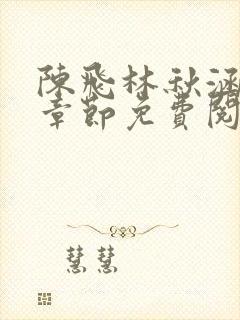 陳飛林秋涵
章節免費閱
慧慧